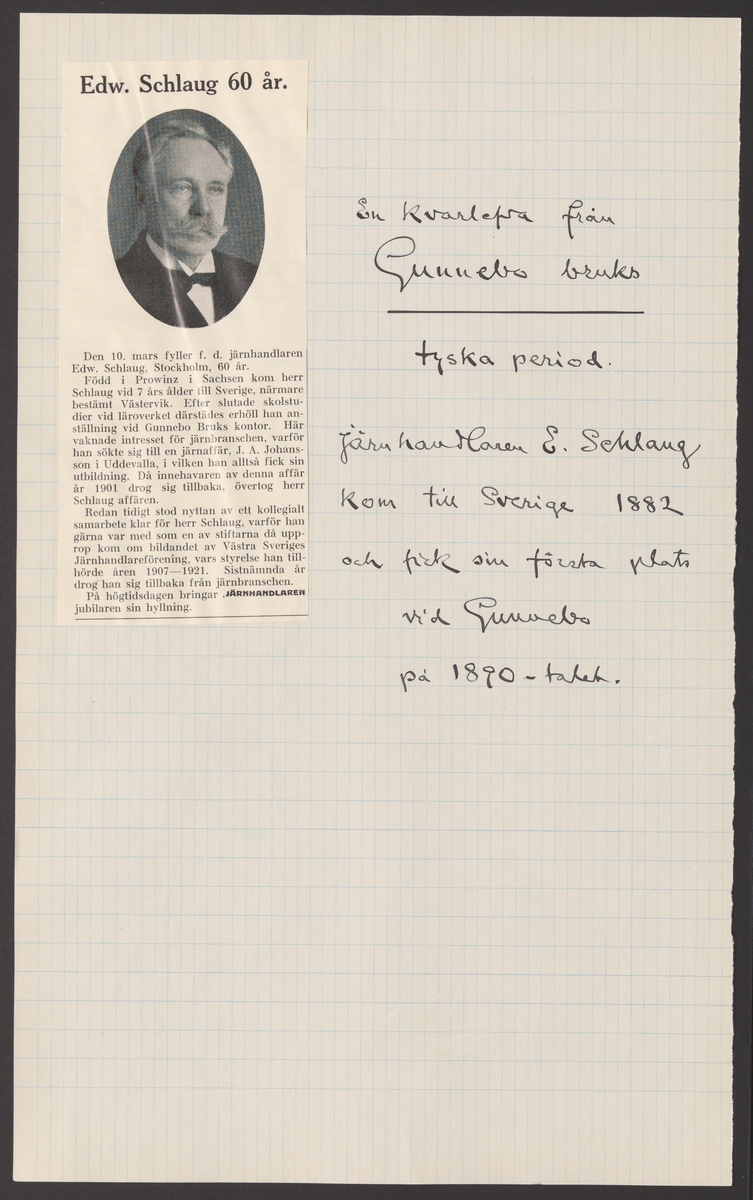 Edw. Schlaug 60 år.
Den 10. mars fyller f. d. järnhandlaren
Edw. Schlaug, Stockholm, 60 år.
Född i Prowinz i Sachsen kom herr
Schlaug vid 7 års ålder till Sverige, närmare
bestämt Västervik. Efter slutade skolstu-
dier vid läroverket därstädes erhöll han an-
ställning vid Gunnebo Bruks kontor. Här
vaknade intresset för järnbranschen, varför
han sökte sig till en järnaffär, J. A. Johans-
son i Uddevalla, i vilken han alltså fick sin
utbildning. Då innehavaren av denna affär
år 1901 drog sig tillbaka, övertog herr
Schlaug affären.
Redan tidigt stod nyttan av ett kollegialt
samarbete klar för herr Schlaug, varför han
gärna var med som en av stiftarna då upp-
rop kom om bildandet av Västra Sveriges
Järnhandlareförening, vars styrelse han till-
hörde åren 1907—1921. Sistnämnda år
drog han sig tillbaka från järnbranschen.
På högtidsdagen bringar JÄRNHANDLAREN
jubilaren sin hyllning.
En kvarlefva från
Gunnebo bruks
tyska period.
Järnhandlaren E. Schlaug
kom till Sverige 1882
och fick sin första plats
vid Gunnebo
på 1890-talet.